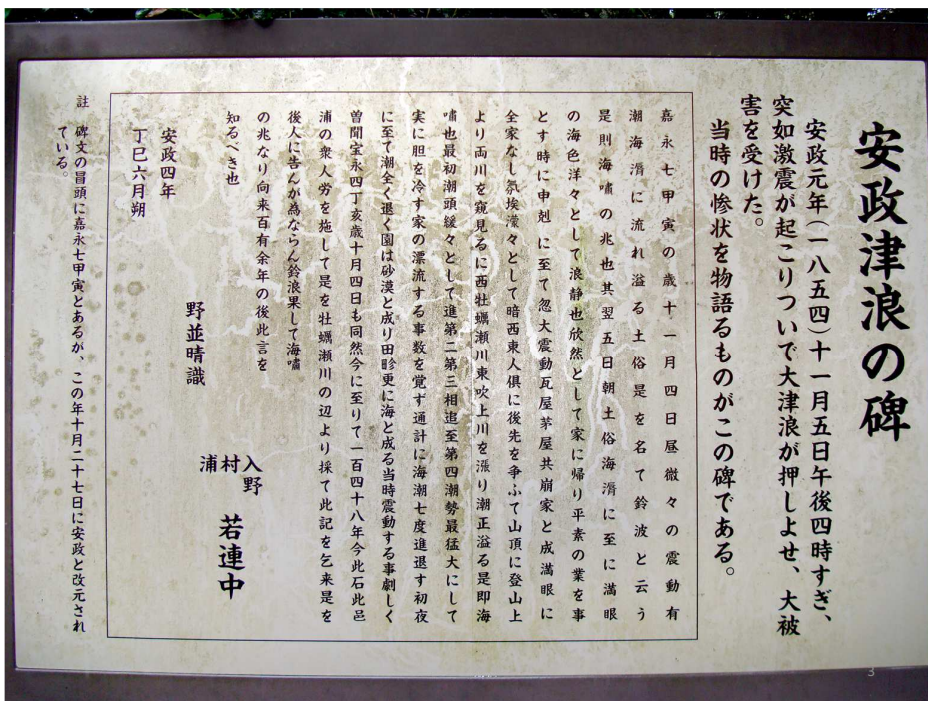 安政津浪の碑
安政元年（一八五四）十一月五日午後四時すぎ、
突如激震が起こりついで大津浪が押しよせ、大被
害を受けた。
当時の惨状を物語るものがこの碑である。
嘉永七甲寅の歳十一月四日昼微々の震動有
潮海滑に流れ溢る土俗是を名て鈴波と云う
是則海嘯の兆也其翌五日朝土俗海滑に至に満眼
の海色洋々として浪静也欣然として家に帰り平素の業を事
とす時に申剋に至て忽大震動瓦屋茅屋共崩家と成満眼に
全家なし氛埃濛々として暗西東人倶に後先を争ふて山頂に登山上
より両川を窺見るに西牡蠣瀬川東吹上川を漲り潮正溢る是即海
嘯也最初潮頭緩々として進第二第三相追至第四潮勢最猛大にして
実に胆を冷す家の漂流する事数を覚ず通計に海潮七度進退す初夜
に至て潮全く退く園は砂漠と成り田畛更に海と成る当時震動する事劇しく
曽聞宝永四丁亥歳十月四日も同然今に至りて一百四十八年今此石此邑
浦の衆人労を施して是を牡蠣瀬川の辺より採て此記を乞来是を
後人に告んが為ならん鈴浪果して海嘯
の兆なり向来百有余年の後此言を
知るべき也
安政四年
丁巳六月朔
野並晴識
入野
村
浦
若連中
註　碑文の冒頭に嘉永七甲寅とあるが、この年十月二十七日に安政と改元され
ている。
3